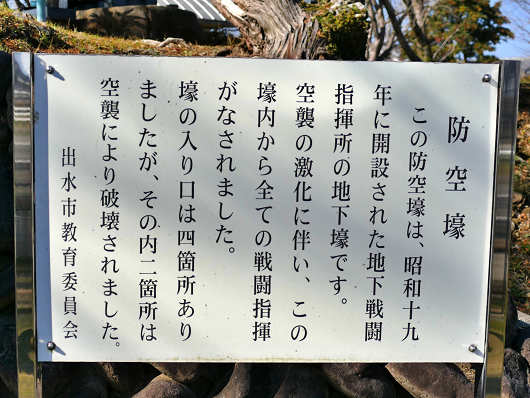 防空壕
この防空壕は、昭和十九
年に開設された地下戦闘
指揮所の地下壕です。
空襲の激化に伴い、この
壕内から全ての戦闘指揮
がなされました。
壕の入り口は四箇所あり
ましたが、その内二箇所は
空襲により破壊されました。
出水市教育委員会